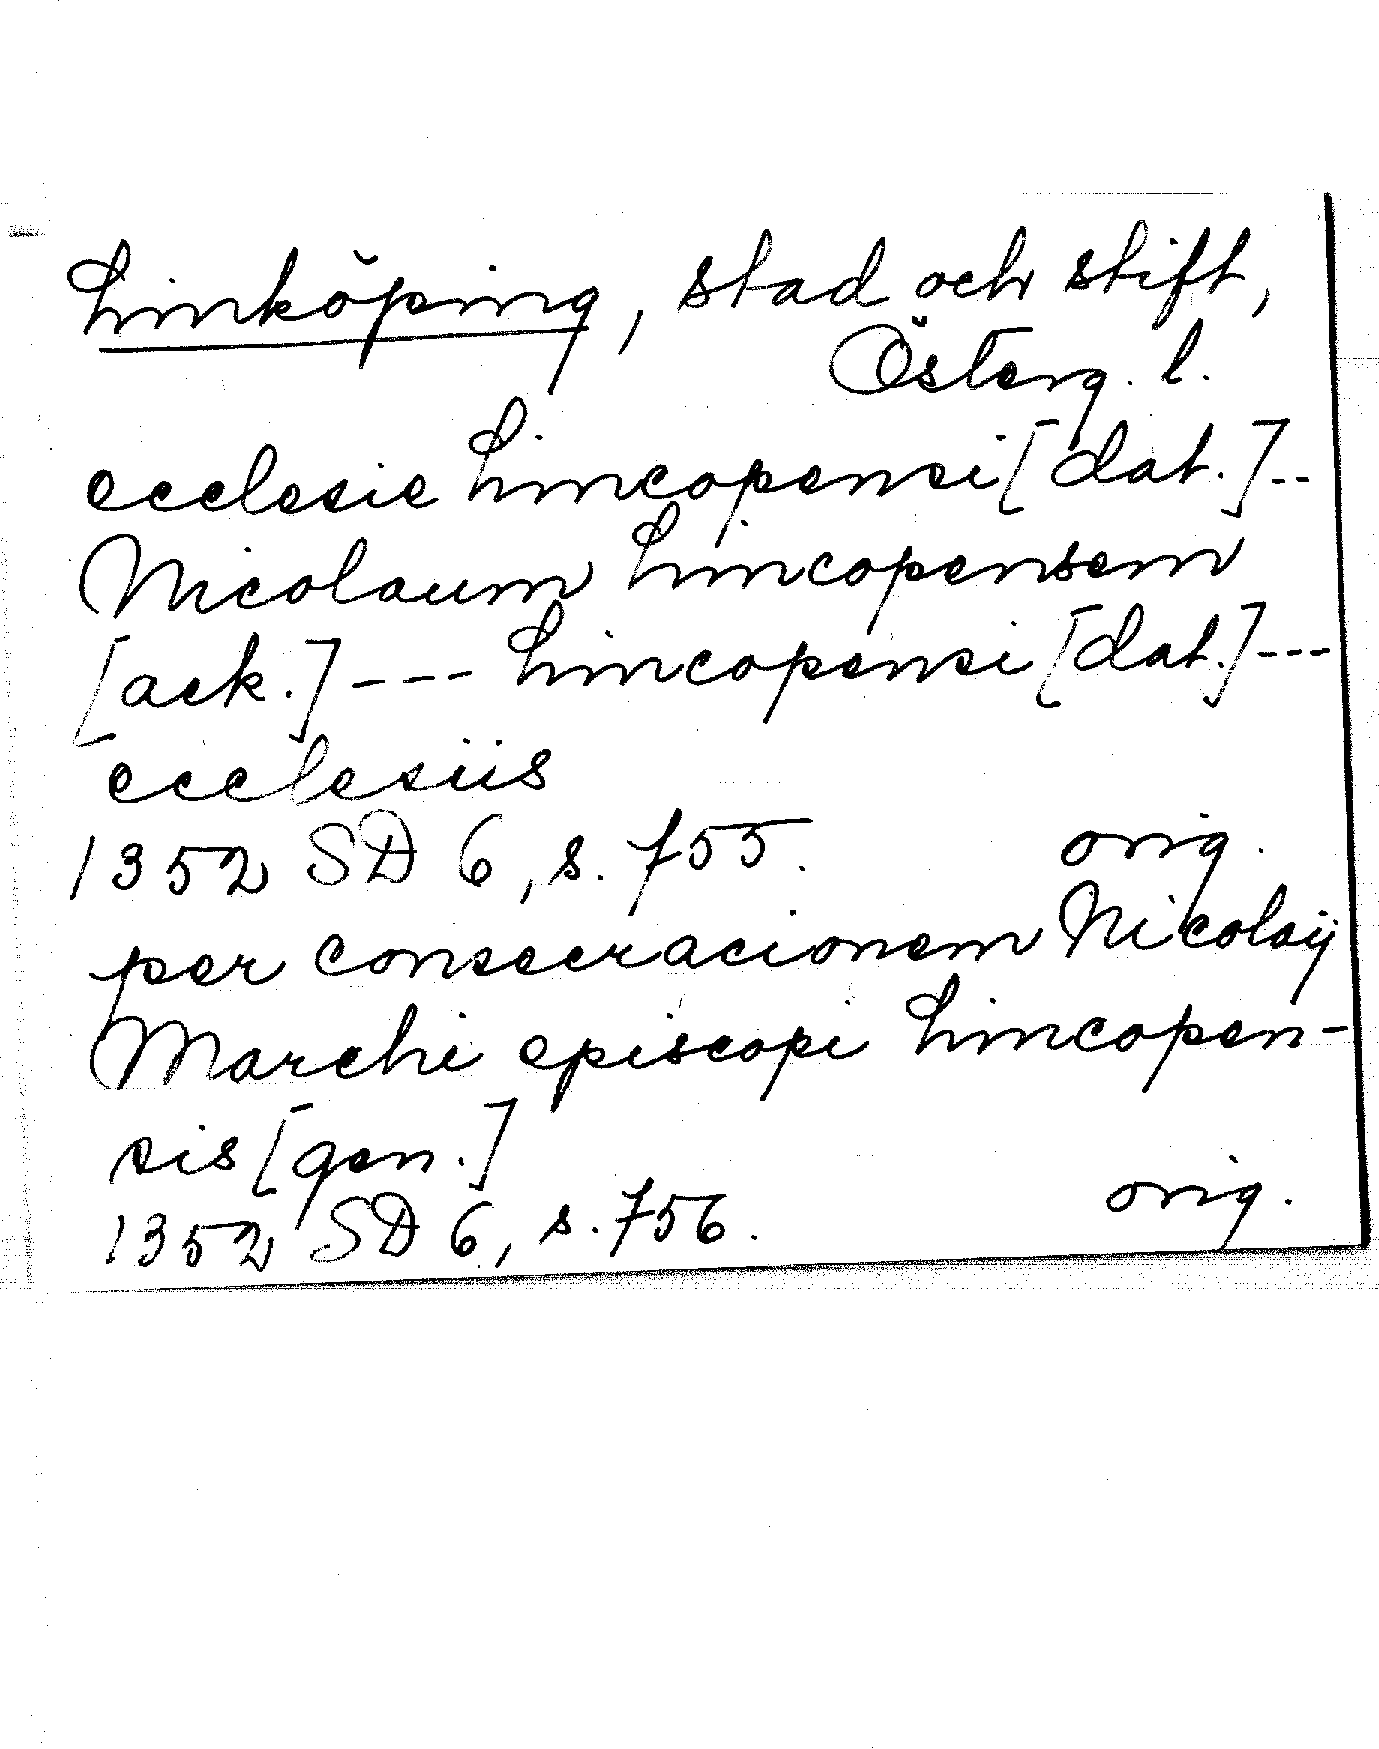 Linköping, stad och stift,
Österg. l.
ecclesie Lincopensi [dat.]--
Nicolaum Lincopensem
[ack.]--- Lincopensi [dat.]---
ecclesiis
1352 SD 6, s. 755. orig.
per consecracionem Nicolaij
Marchi episcopi Lincopen-
sis [gen.]
1352 SD 6, s. 756. orig.